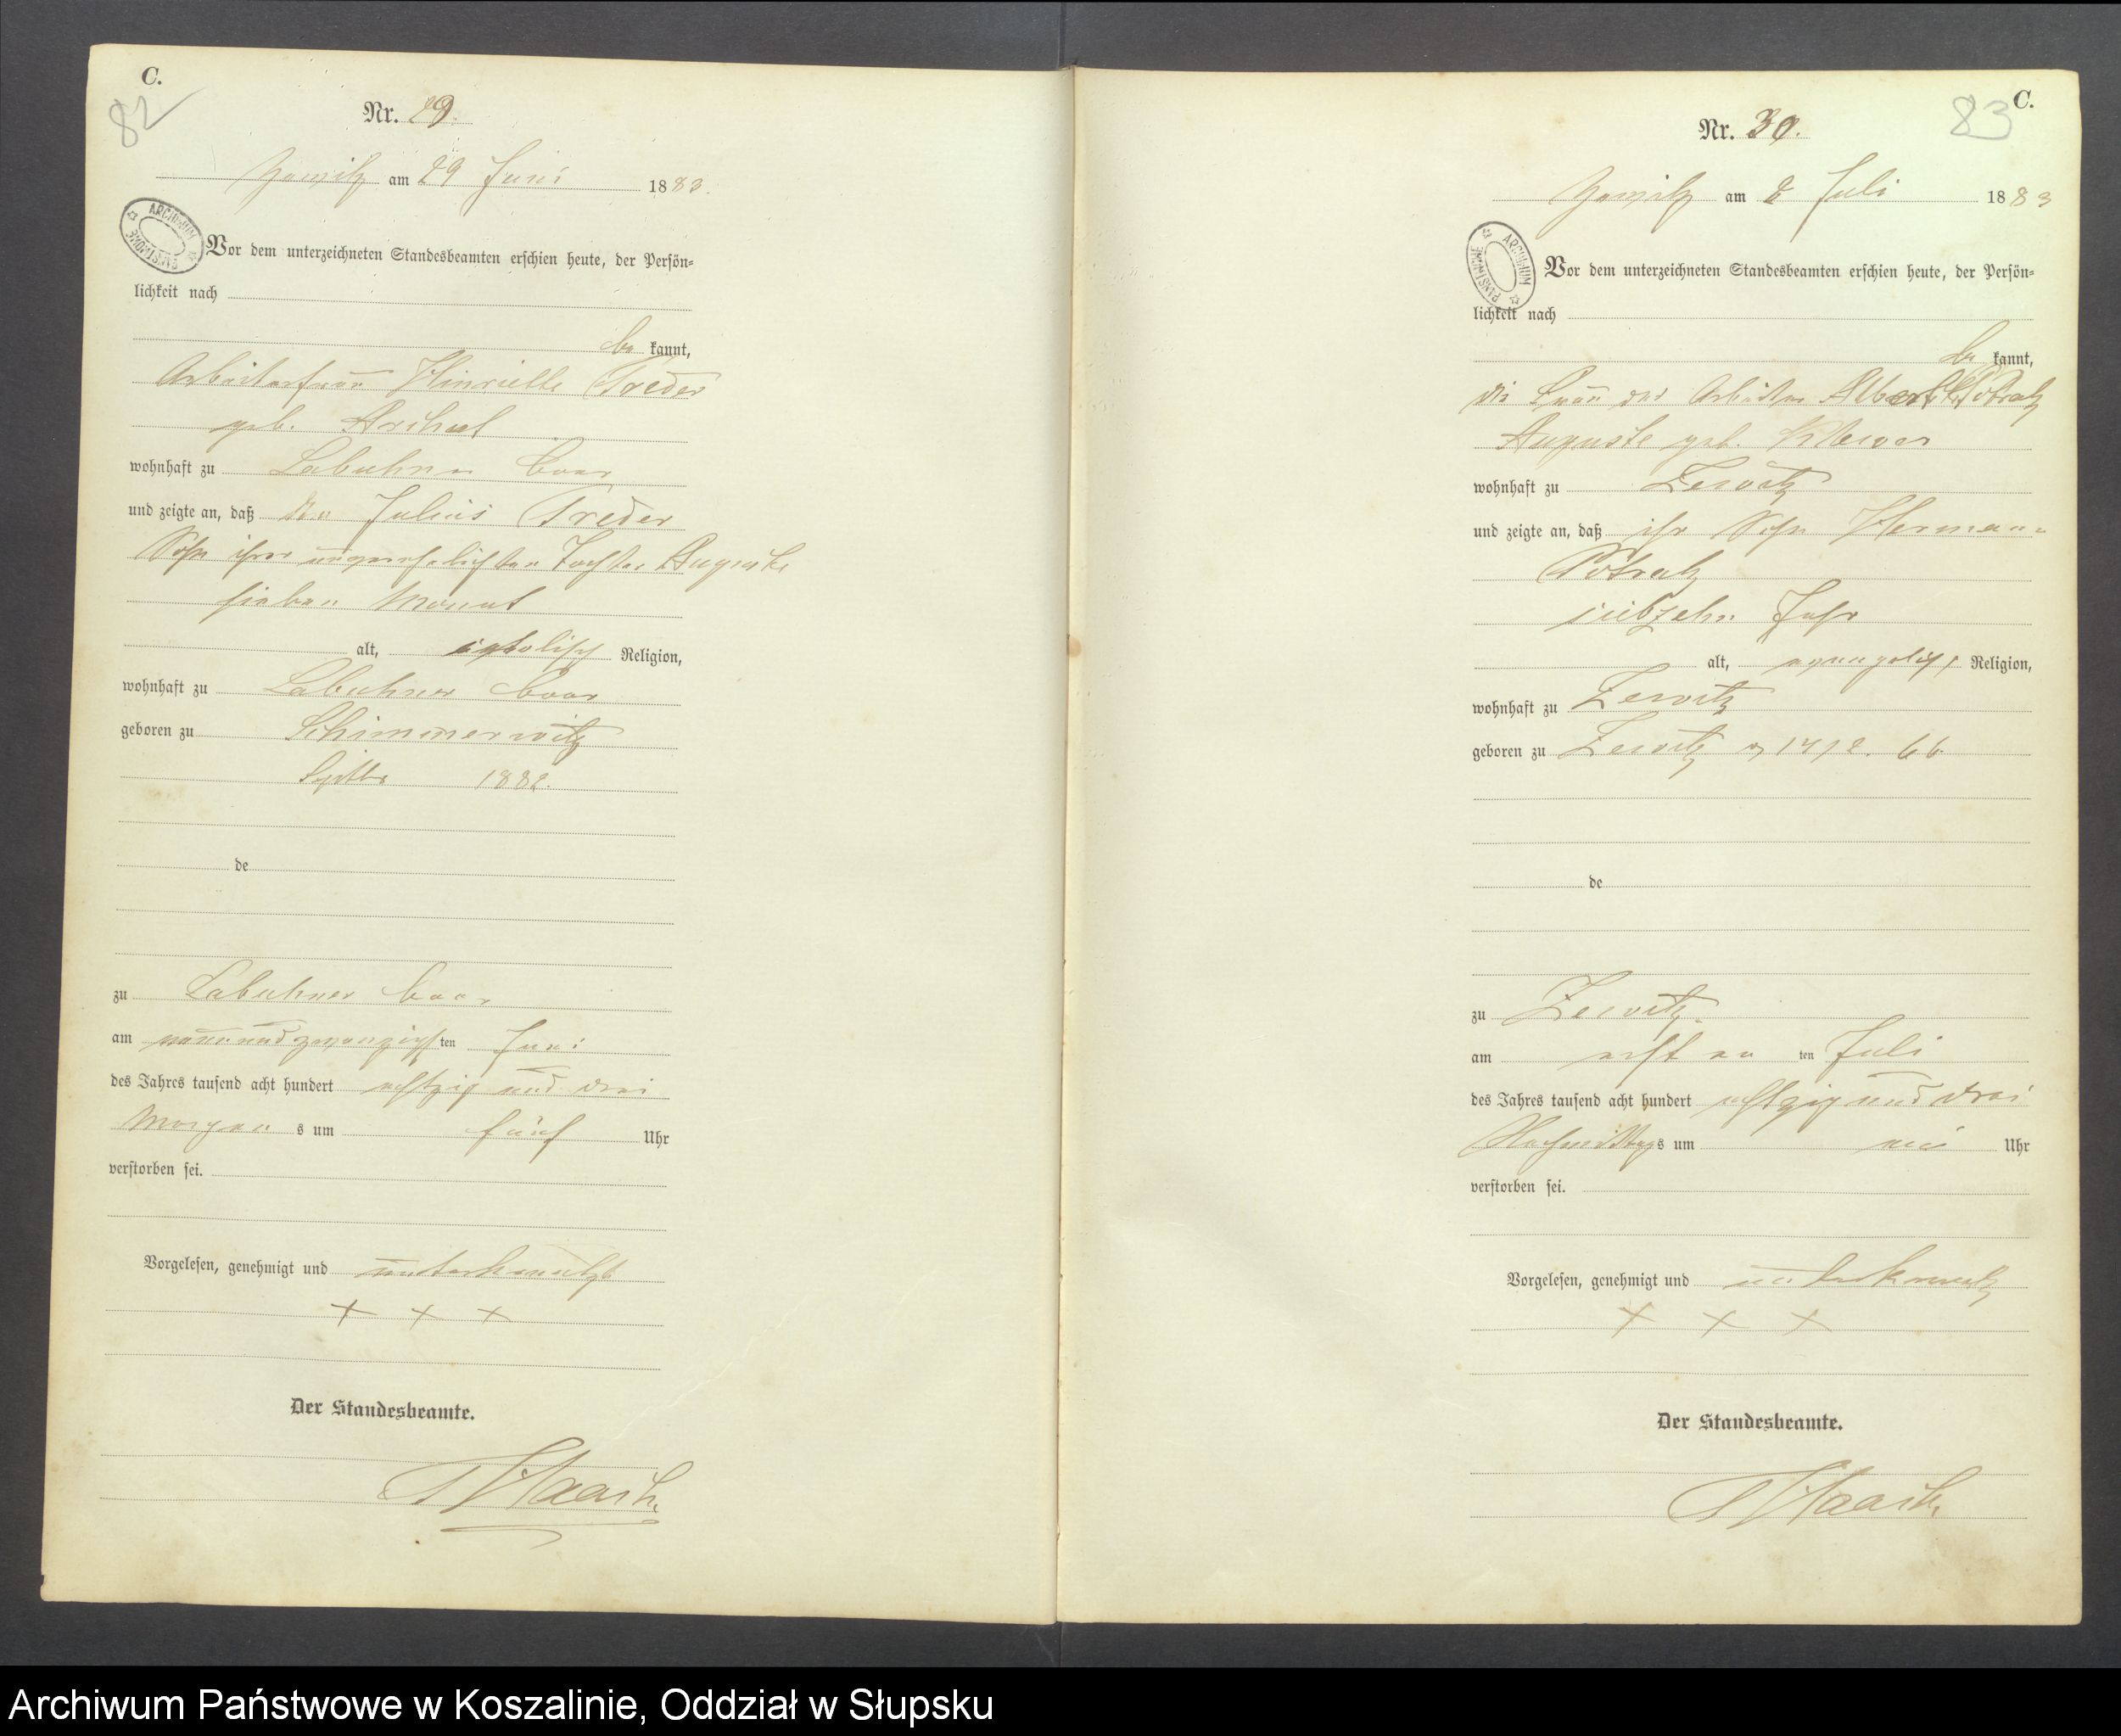 C.
82
Nr. 29.
am 29 Juni 1883.
ARCHIWUM PAŃSTWOWE
Vor dem unterzeichneten Standesbeamten erschien heute, der Persön=
lichkeit nach
be kannt,
Arbeiterfrau Hinriette Treder
geb.
wohnhaft zu Labuhner
und zeigte an, daß der Julius Treder
Sohn ihrer unverehelichten Tochter Auguste
sieben Monat
alt, catholisch Religion,
wohnhaft zu Labuhner
geboren zu Schimmerwitz
Septbr 1882.
de
zu Labuhner
am neunundzwanzigsten Juni
des Jahres tausend acht hundert achtzig und drei
Morgen s um fünf Uhr
verstorben sei.
Vorgelesen, genehmigt und unterkreuzt
+ + +
Der Standesbeamte.
Haask
C.
83
Nr. 30.
am 2 Juli 1883
ARCHIWUM PAŃSTWOWE
Vor dem unterzeichneten Standesbeamten erschien heute, der Persön=
lichkeit nach
be kannt,
die Frau des Arbeiter Albert Potratz
Auguste geb.
wohnhaft zu Zewitz
und zeigte an, daß ihr Sohn Hermann
Potratz
siebzehn Jahr
alt, evangelisch Religion,
wohnhaft zu Zewitz
geboren zu Zewitz 66
de
zu Zewitz
am ersten ten Juli
des Jahres tausend acht hundert achtzig und drei
Nachmittags um Uhr
verstorben sei.
Vorgelesen, genehmigt und unterkreuzt
+ + +
Der Standesbeamte.
Haask
Archiwum Państwowe w Koszalinie, Oddział w Słupsku